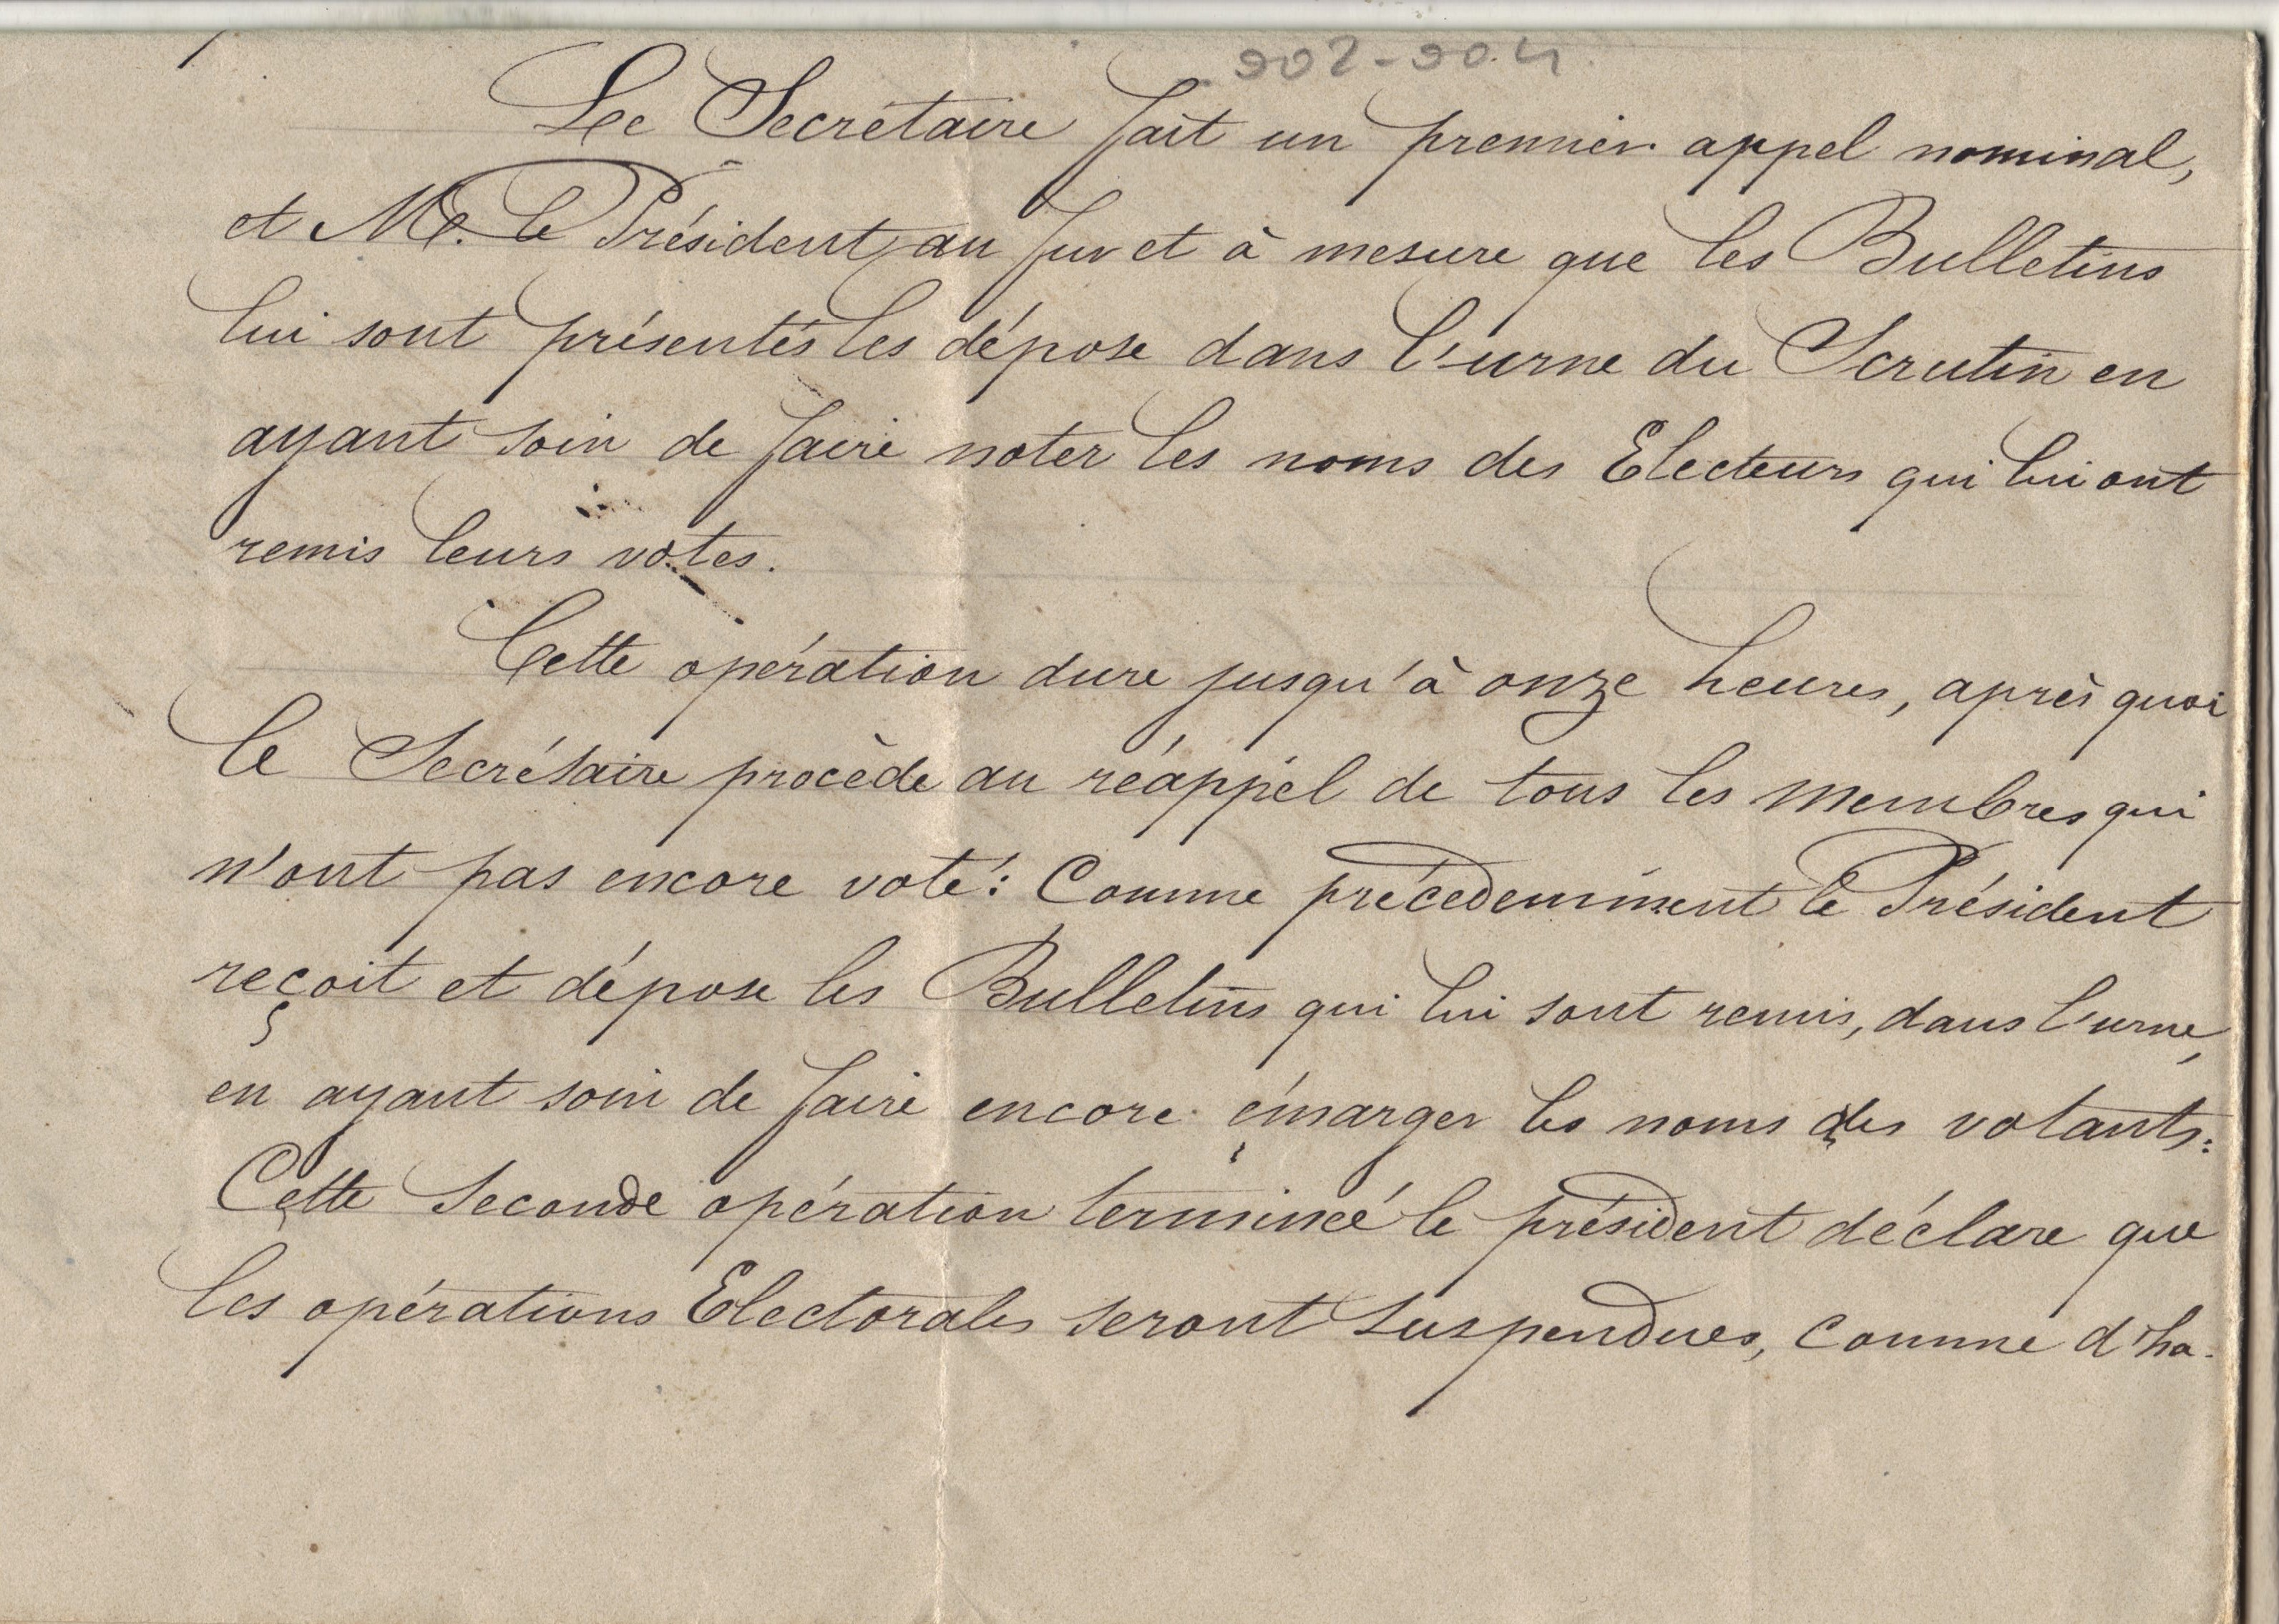 902-904
Le Secrétaire fait un premier appel nominal,
et Mr. le Président, au fur et à mesure que les Bulletins
lui sont présentés les dépose dans l'urne du Scrutin en
ayant soin de faire noter les noms des Electeurs qui lui ont
remis leurs votes.
Cette opération dure jusqu'à onze heures, après quoi
le Secrétaire procède au réappel de tous les membres qui
n'ont pas encore voté: Comme précedemment le Président
reçoit et dépose les Bulletins qui lui sont remis, dans l'urne,
en ayant soin de faire encore émarger les noms des votants:
Cette Seconde opération terminée le président déclare que
les opérations Electorales seront suspendues, comme d'ha-